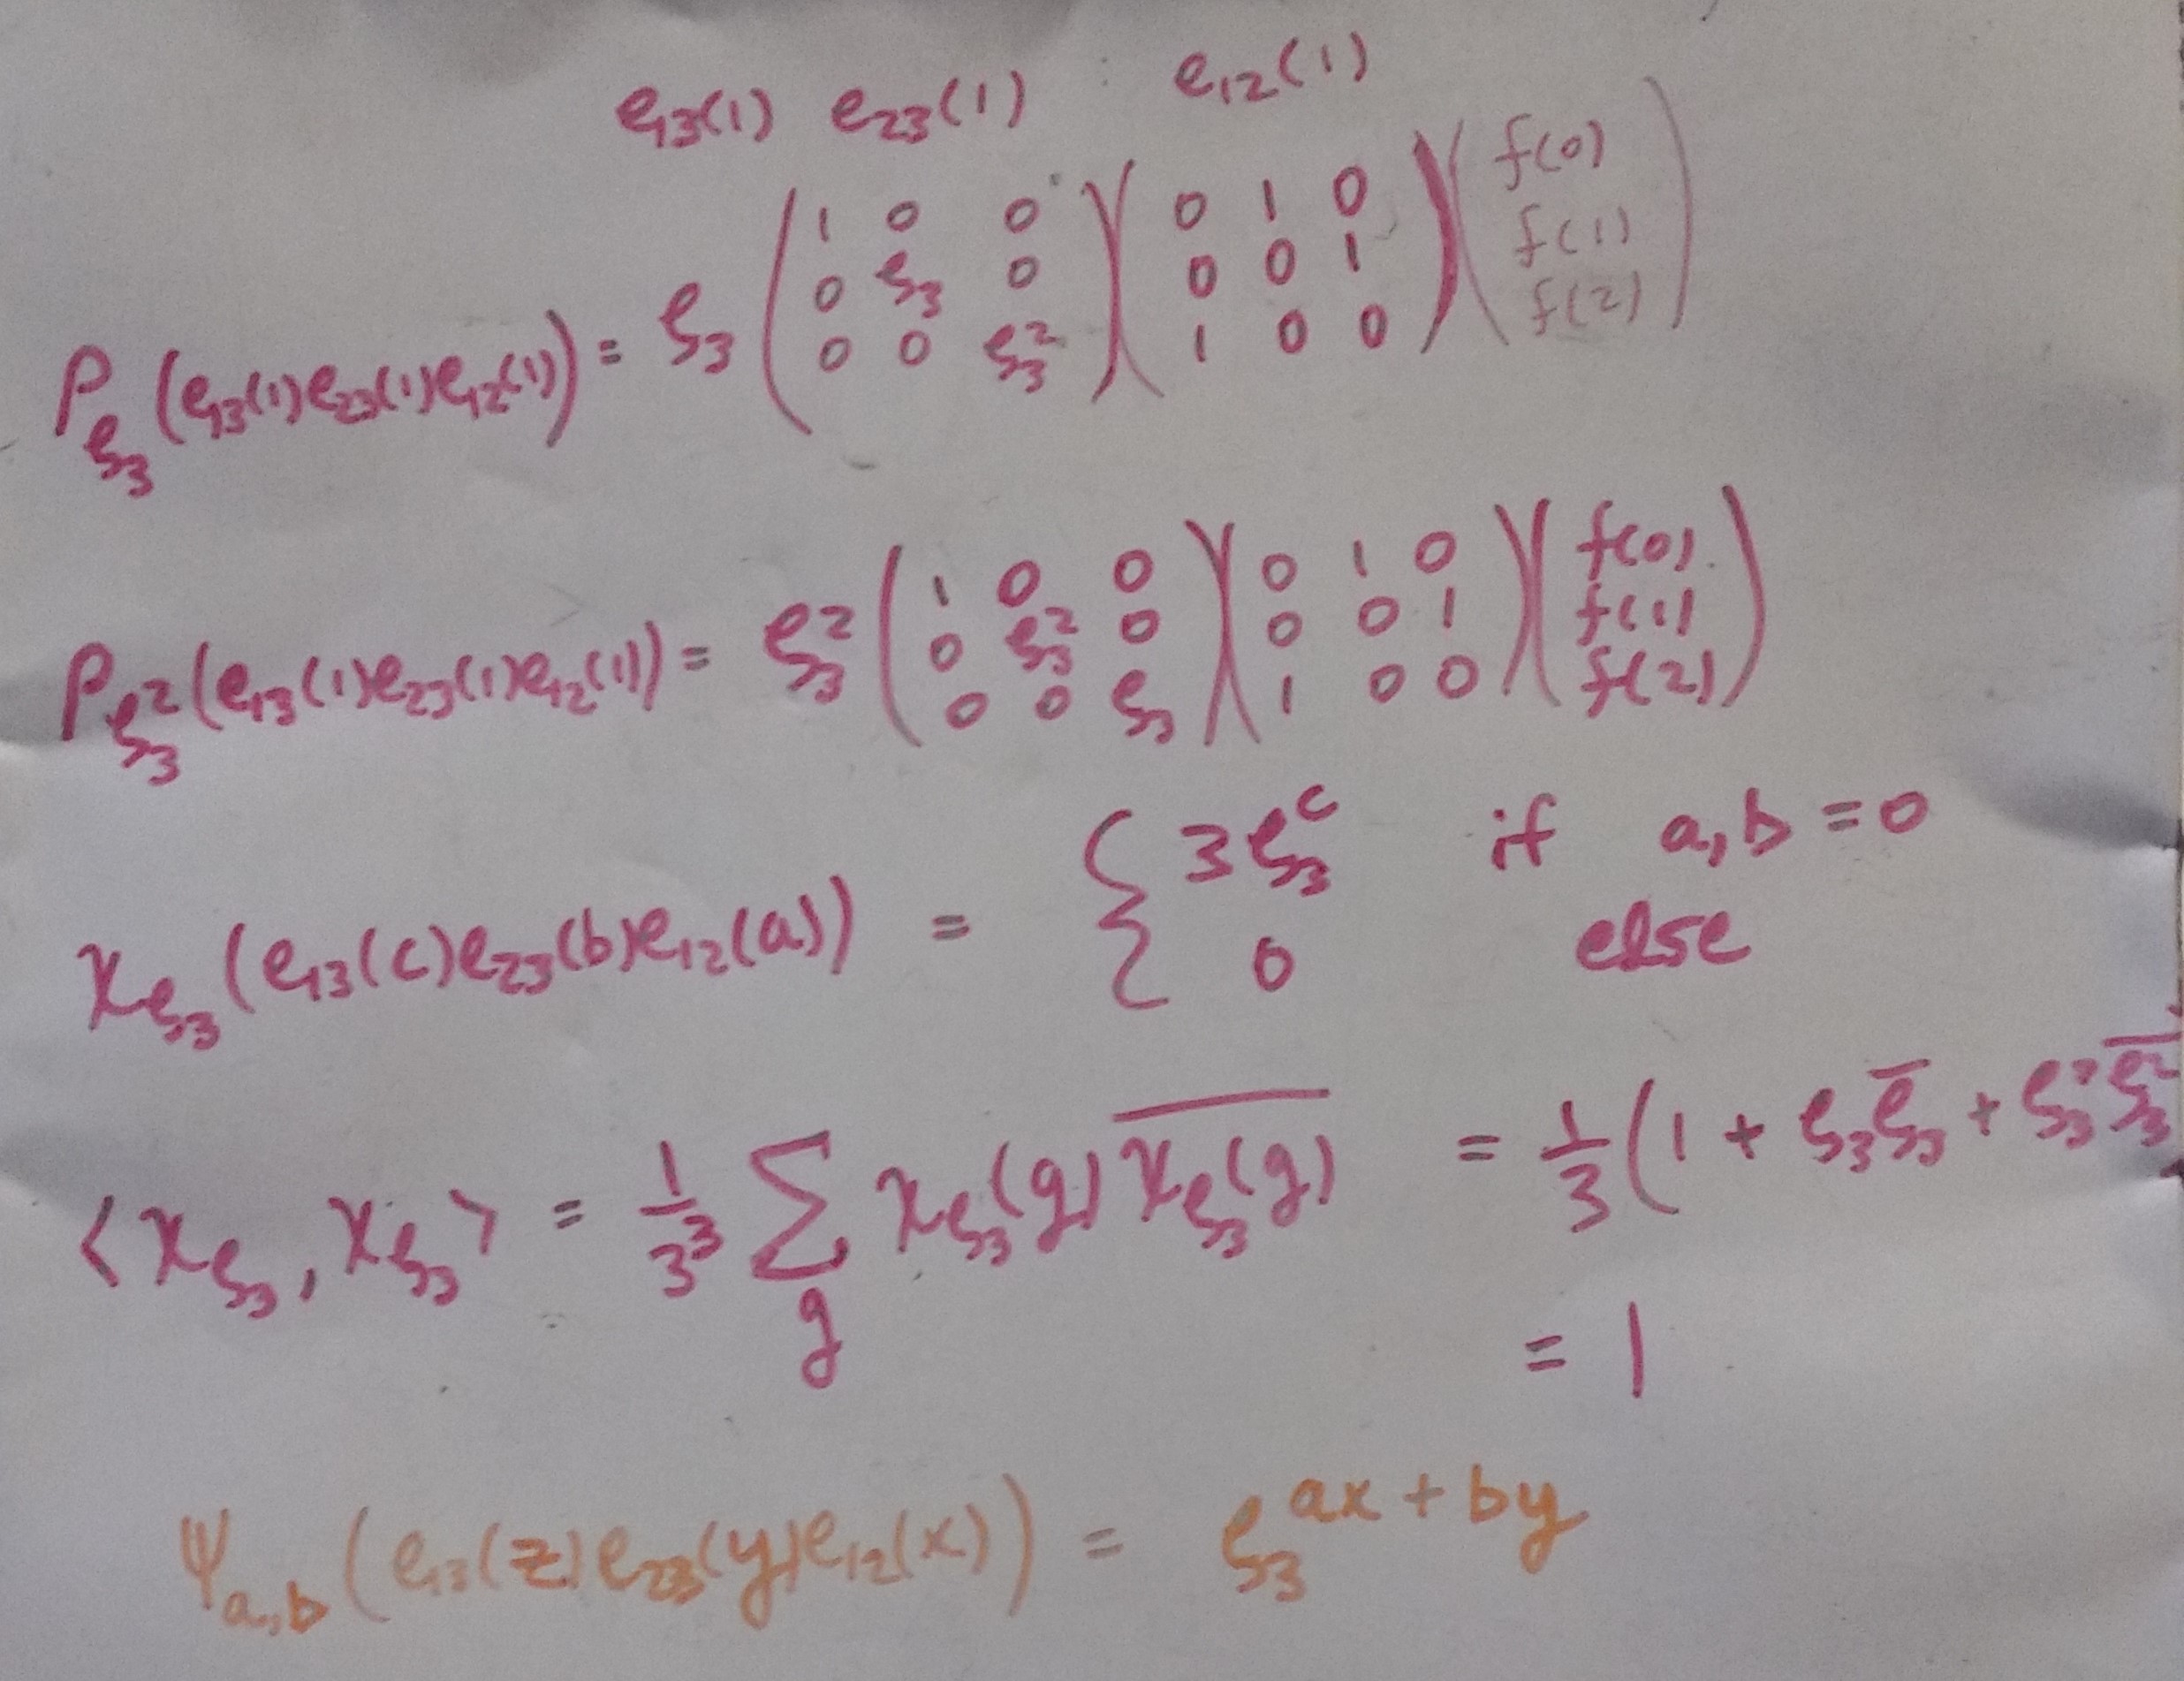 e₁₃(1) e₂₃(1) e₁₂(1)
ρ_ξ₃(e₁₃(1)e₂₃(1)e₁₂(1)) = ξ₃ (1 0 0 / 0 ξ₃ 0 / 0 0 ξ₃²)(0 1 0 / 0 0 1 / 1 0 0)(f(0) / f(1) / f(2))
ρ_ξ₃²(e₁₃(1)e₂₃(1)e₁₂(1)) = ξ₃² (1 0 0 / 0 ξ₃² 0 / 0 0 ξ₃)(0 1 0 / 0 0 1 / 1 0 0)(f(0) / f(1) / f(2))
χ_ξ₃(e₁₃(c)e₂₃(b)e₁₂(a)) = { 3ξ₃ᶜ if a,b = 0
0 else
<χ_ξ₃, χ_ξ₃> = 1/3³ Σ_g χ_ξ₃(g) \overline{χ_ξ₃(g)} = 1/3 (1 + ξ₃\overline{ξ₃} + ξ₃²\overline{ξ₃²}
= 1
ψ_a,b(e₁₃(z)e₂₃(y)e₁₂(x)) = ξ₃^{ax + by}